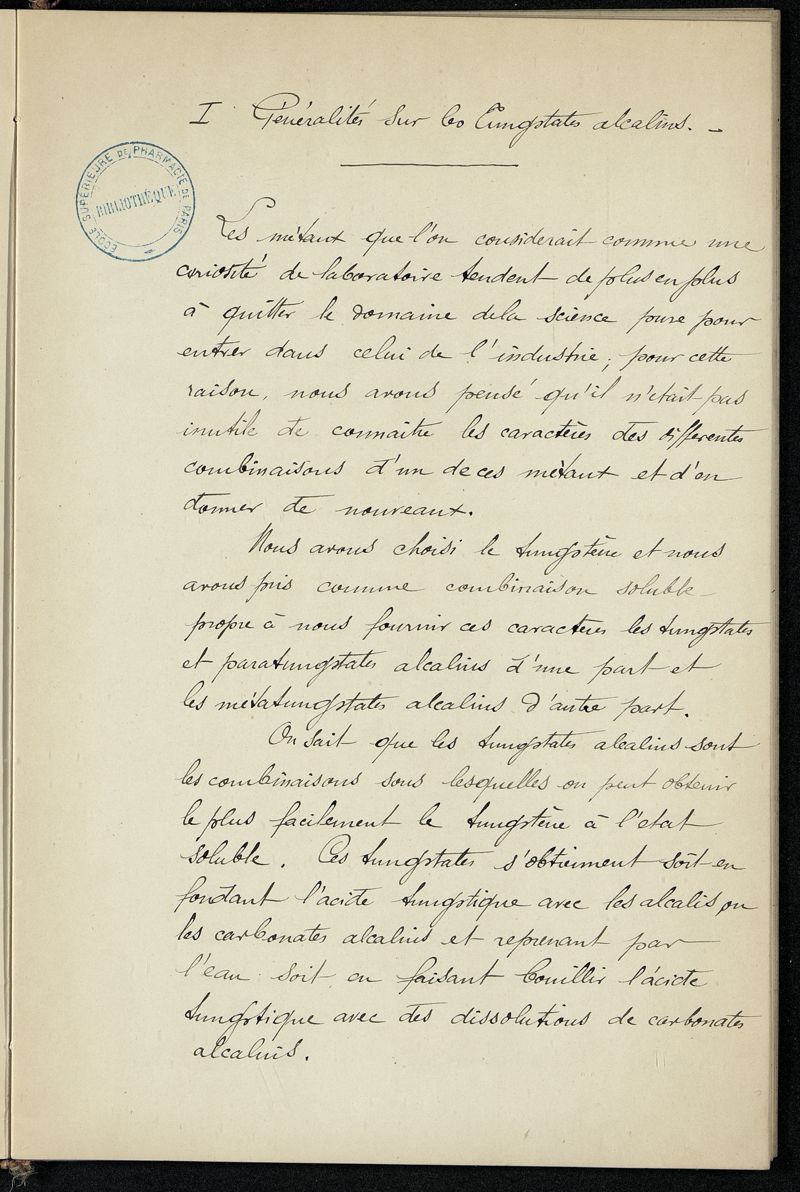 I Généralités sur les Tungstates alcalins. _
ÉCOLE SUPÉRIEURE DE PHARMACIE DE PARIS
BIBLIOTHÈQUE
Les métaux que l'on considerait comme une
curiosité de laboratoire tendent de plus en plus
à quitter le domaine de la science pure pour
entrer dans celui de l'industrie; pour cette
raison, nous avons pensé qu'il n'était pas
inutile de connaitre les caractères des differentes
combinaisons d'un de ces métaux et d'en
donner de nouveaux.
Nous avons choisi le tungstène et nous
avons pris comme combinaison soluble
propre à nous fournir ces caractères les tungstates
et paratungstates alcalins d'une part et
les métatungstates alcalins d'autre part.
On sait que les tungstates alcalins sont
les combinaisons sous lesquelles on peut obtenir
le plus facilement le tungstène à l'etat
soluble. Ces tungstates s'obtiennent soit en
fondant l'acide tungstique avec les alcalis, ou
les carbonates alcalins et reprenant par
l'eau soit en faisant bouillir l'acide
tungstique avec des dissolutions de carbonates
alcalins.